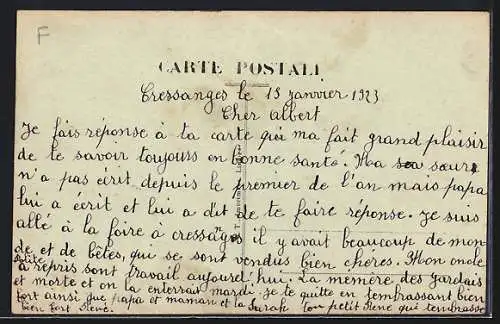 F
CARTE POSTALE
Cressanges le 15 janvier 1923
Cher Albert
Je fais réponse à ta carte qui ma fait grand plaisir
de te savoir toujours en bonne santé. Ma sœur
n'a pas écrit depuis le premier de l'an mais papa
lui a ecrit et lui a dit de te faire réponse. Je suis
allé à la foire à cressanges il y avait beaucoup de mon
de et de bêtes, qui se sont vendus bien cheres. Mon oncle
a répris sont travail aujourd'hui. La mémère des Jardais
et morte et on la enterrait mardi. je te quitte en tembrassant bien
fort ainsi que papa et maman et la
ton petit René qui tembrasse
bien fort René.